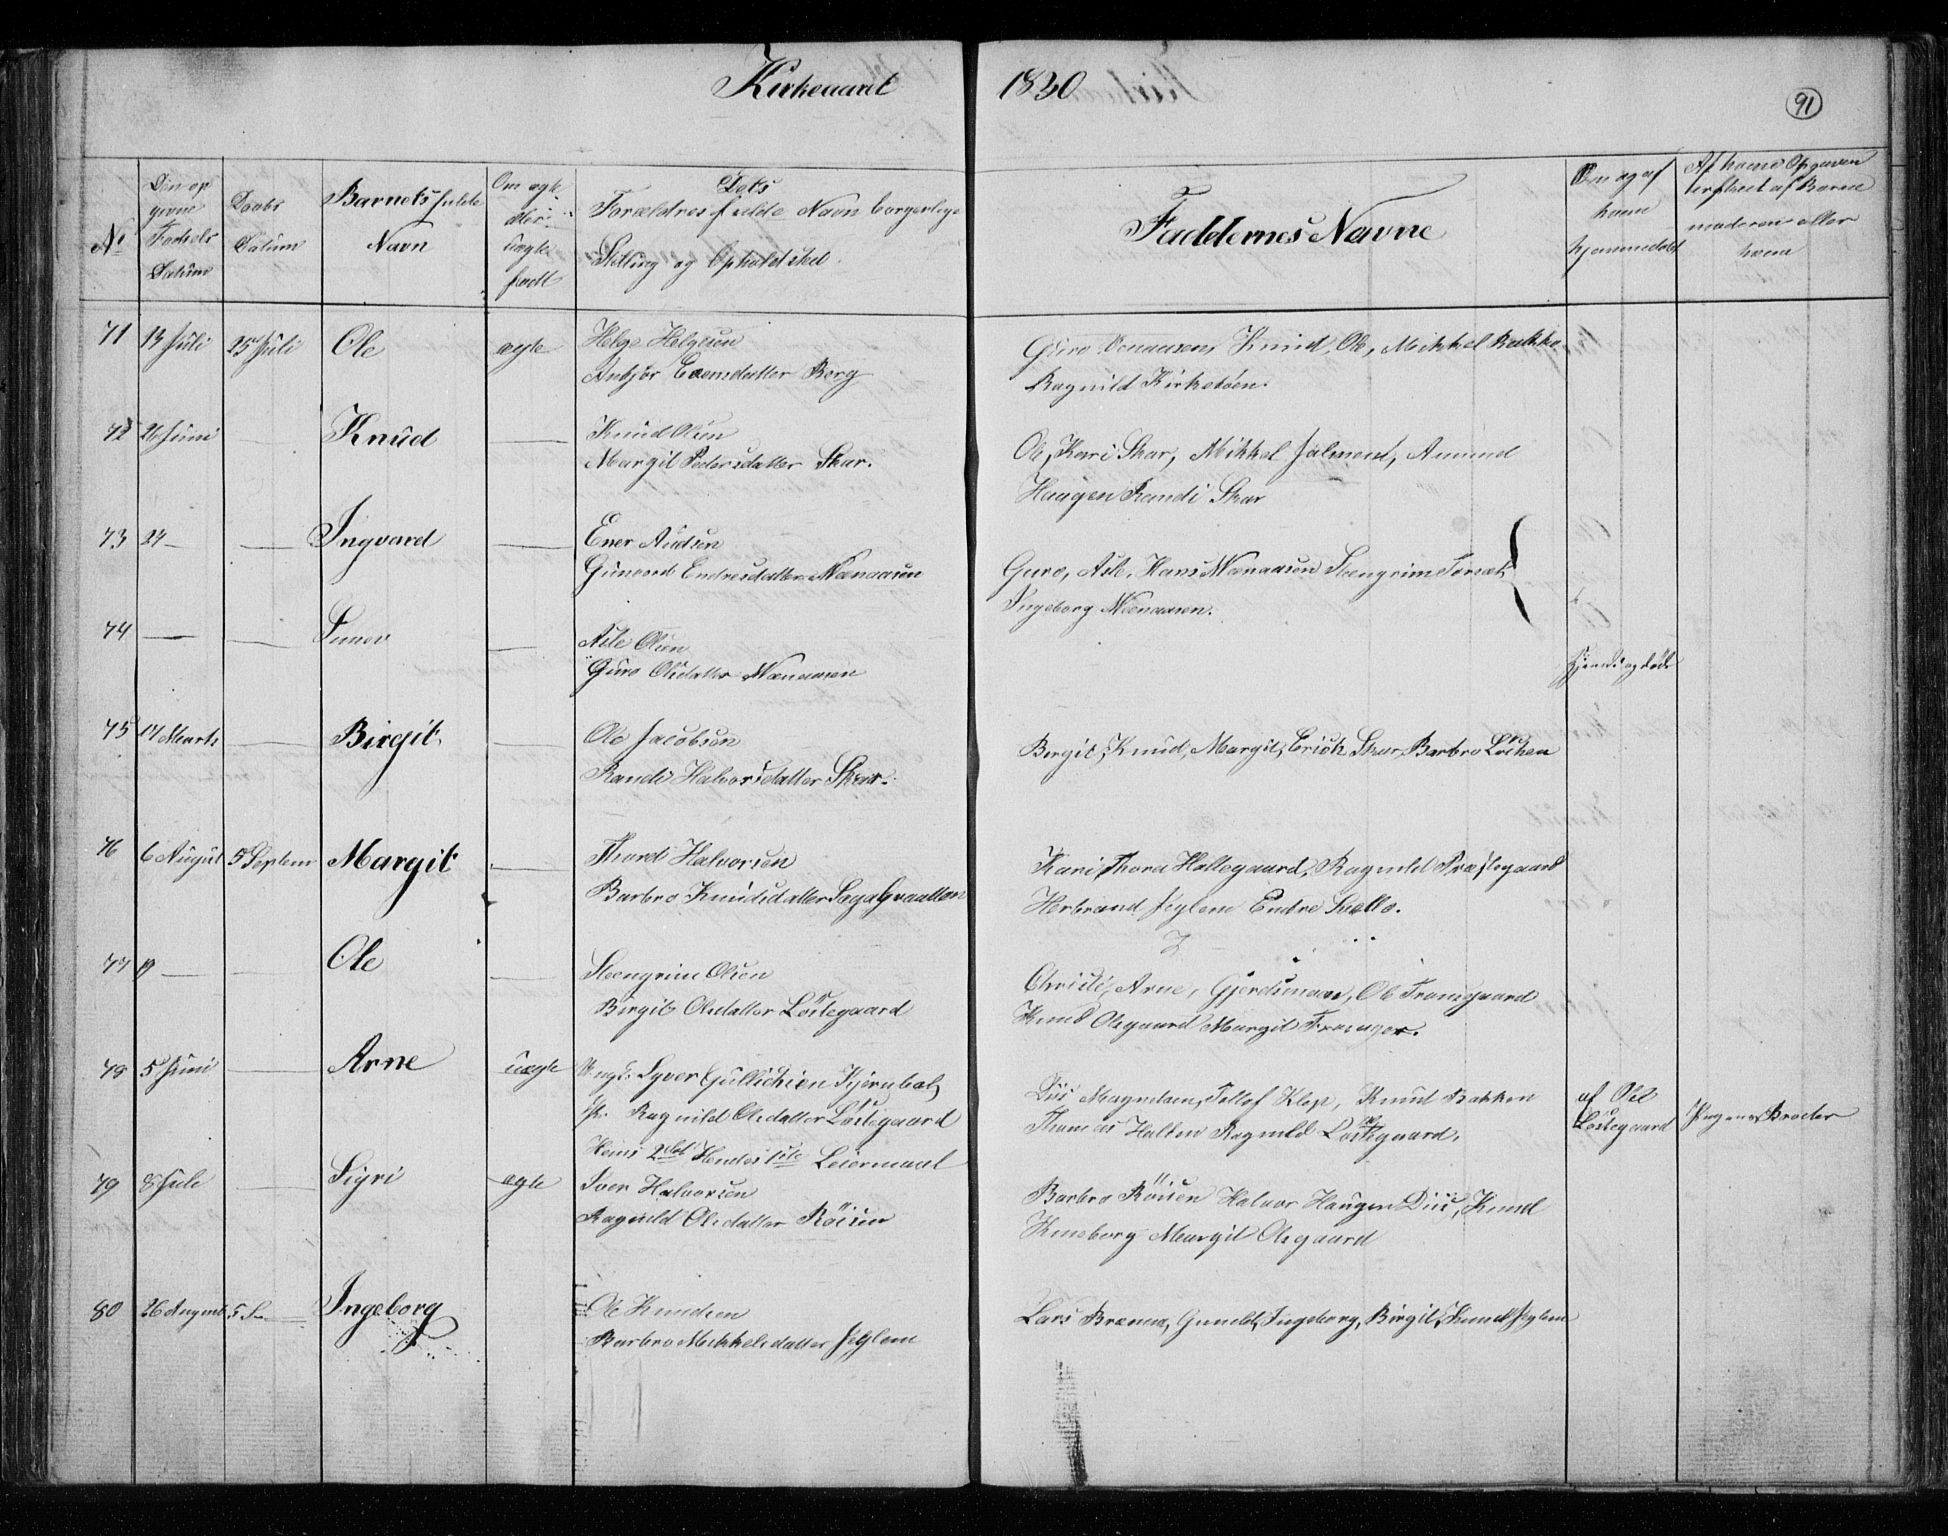 Kirkeaaret 1830
91
No
Den op
givne
Fødsels
Datum
Daabs
Datum
Barnets fulde
Navn
Om ægte
eller
uægte
født
Dets
Forældres fulde Navn borgerlige
Stilling og Opholdsted.
Faddernes Navne
Om og af
hvem
hjemmedøbt
Af hvem Opgiven
erholdt af Barne
moderen eller
hvem
71 13 Juli 25 Juli Ole ægte Helge Helgesen
Anbjør Evensdatter Berg
Guro Knud, Ole, Mikkel Bakke
Ragnild Kirketoen.
72 26 Juni Knud Knud Olsen
Margit Pedersdatter Skar.
Ole, Kari Skar, Mikkel Amund
Haagen Randi Skar
73 24 Ingvard Ener Audsen
Endresdatter Mænaasen
Guro, Asle, Hans Mænaasen Steengrim
Ingeborg Mænaasen.
74 Asle Olsen
Guro Olsdatter Mænaasen
og døde
75 17 Marts Birgit Ole Jacobsen
Randi Halvorsdatter Skar.
Birgit, Knud, Margit, Erich Skar, Barbro Løkken
76 6 August 5 Septem Margit Thord Halvorsen
Barbro Knudsdatter
Kari Thora Hallegaard, Ragnild Præstegaard
Herbrand Jeglem Endre Sællo.
77 19 Ole Steengrim Olsen
Birgit Olsdatter Løstegaard
Christi, Arne, Gjerdsmoen, Ole Tronsgaard
Knud Olsgaard Margit
78 5 Juni Arne uægte Syver Gullichsen
Ragnild Olsdatter Løstegaard
Hans 2det Hendes 1ste Leiermaal
Siri Tollof Klop, Knud Bakken
Thomas Halten Ragnild Løstegaard.
af Ole
Løstegaard
Pigens Broder
79 8 Juli Sigri ægte Iver Halvorsen
Ragnild Olsdatter Röisen
Barbro Röisen Halvor Haugen Knud
Margit Olsgaard
80 26 August 5 S Ingeborg Ole Knudsen
Barbro Mikkelsdatter Jeglem
Lars Bræmna, Gunild, Ingeborg, Birgit, Knud Jeglem